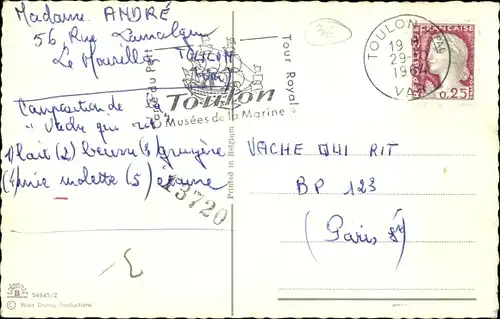 Madame ANDRÉ
56 Rue Lamalgue
Le Mourillon TOULON
(Var)
Composition de la
"Vache qui rit"
1) lait (2) beurre (3) gruyère
(4) mie molette (5) écume
Tour Royale
Toulon
Musées de la Marine
TOULON
19 H
29-
196
VAR
FRANÇAISE
0,25
Printed in Belgium
13720
VACHE QUI RIT
BP 123
(Paris 8è)
54645/2
© Walt Disney Productions